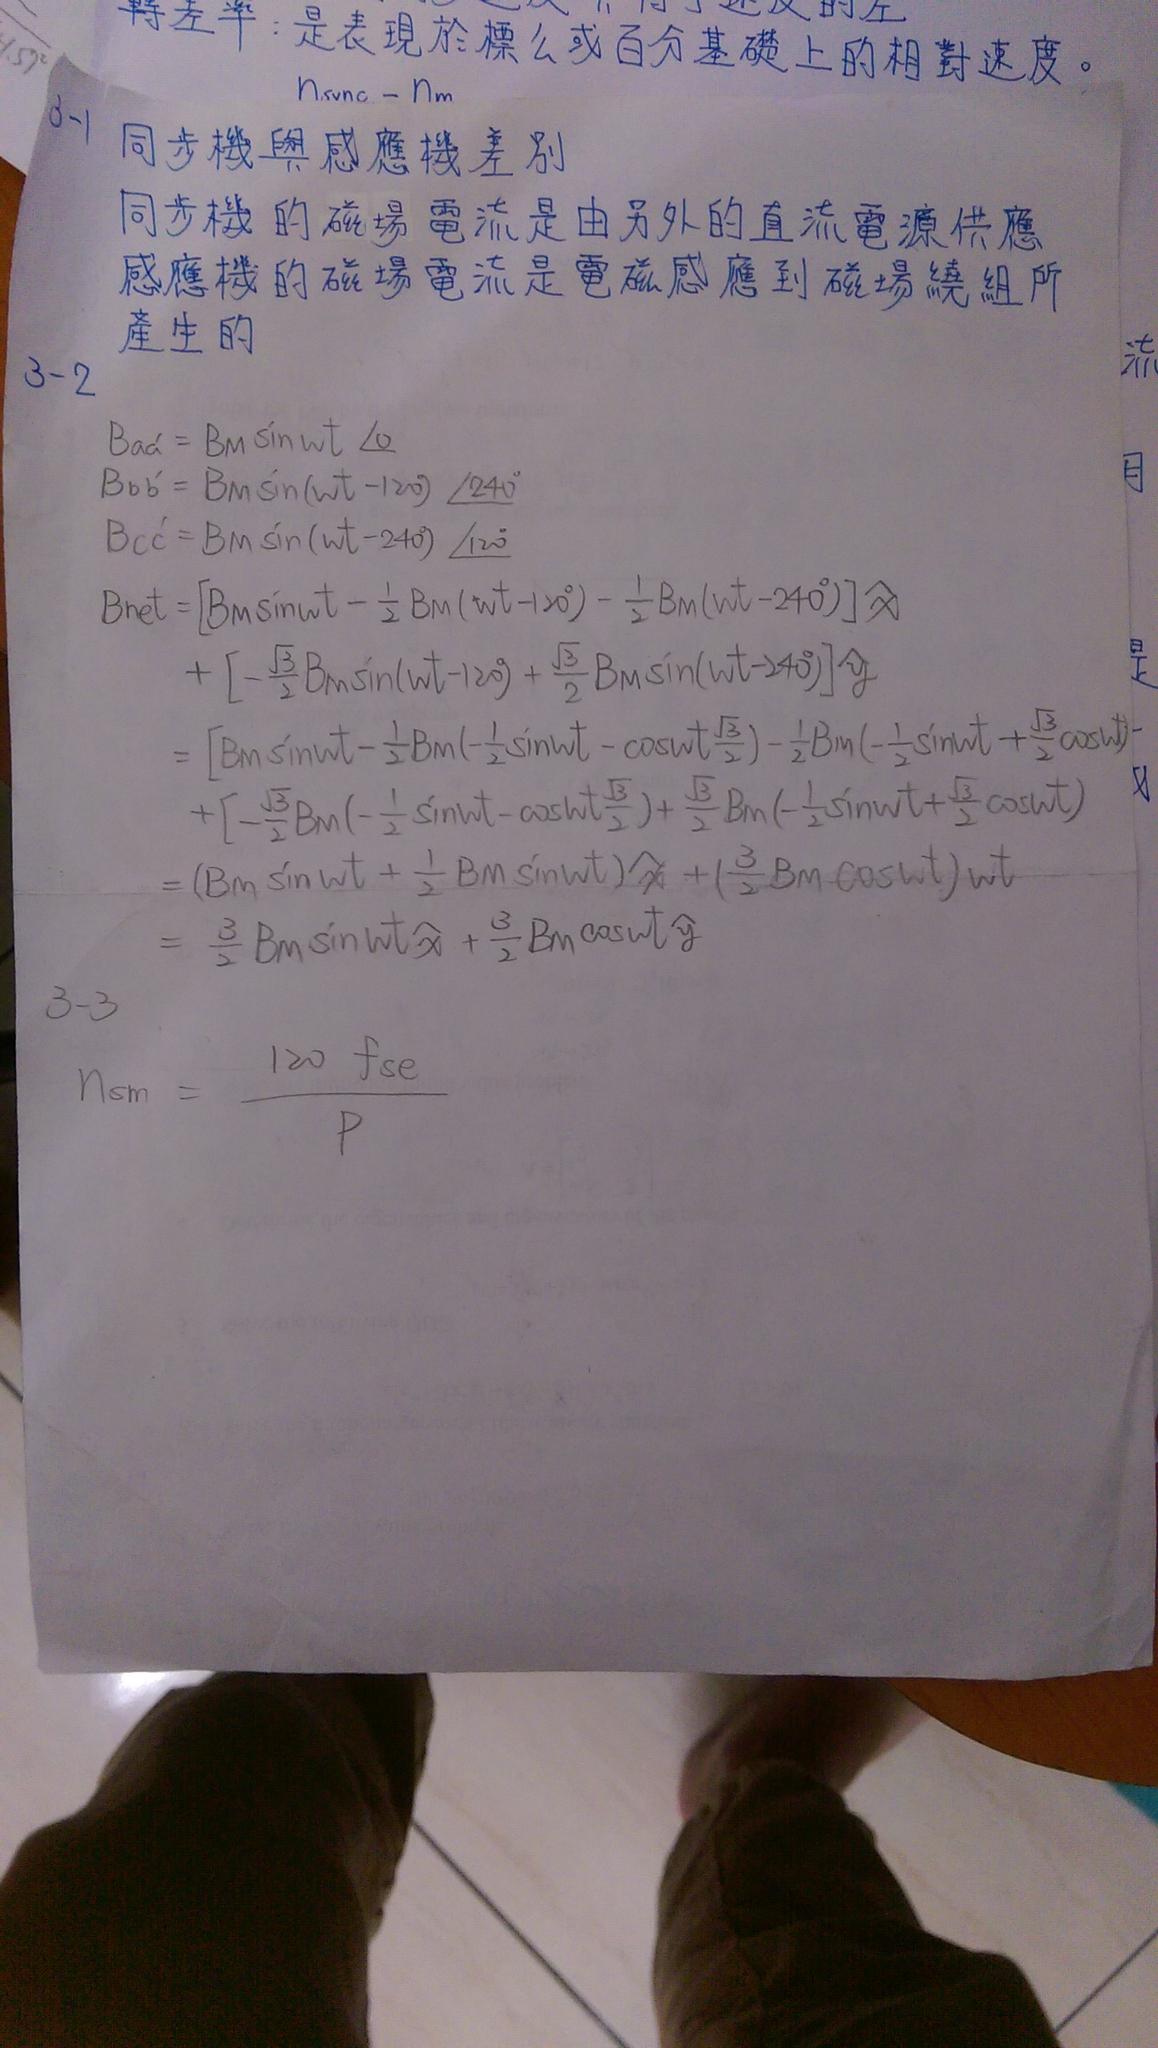 轉差率:是表現於標么或百分基礎上的相對速度。
nsync - nm
3-1
同步機與感應機差別
同步機的磁場電流是由另外的直流電源供應
感應機的磁場電流是電磁感應到磁場繞組所
產生的
3-2
Baa' = BM sinwt ∠0
Bbb' = BM sin(wt-120°) ∠240°
Bcc' = BM sin(wt-240°) ∠120°
Bnet = [BM sinwt - 1/2 BM(wt-120°) - 1/2 BM(wt-240°)] x̂
+ [-√3/2 BM sin(wt-120°) + √3/2 BM sin(wt-240°)] ŷ
= [BM sinwt - 1/2 BM(-1/2 sinwt - coswt √3/2) - 1/2 BM(-1/2 sinwt + √3/2 coswt)
+ [-√3/2 BM(-1/2 sinwt - coswt √3/2) + √3/2 BM(-1/2 sinwt + √3/2 coswt)
= (BM sinwt + 1/2 BM sinwt) x̂ + (3/2 BM coswt) wt
= 3/2 BM sinwt x̂ + 3/2 BM coswt ŷ
3-3
nsm = 120 fse / P
流
目
是